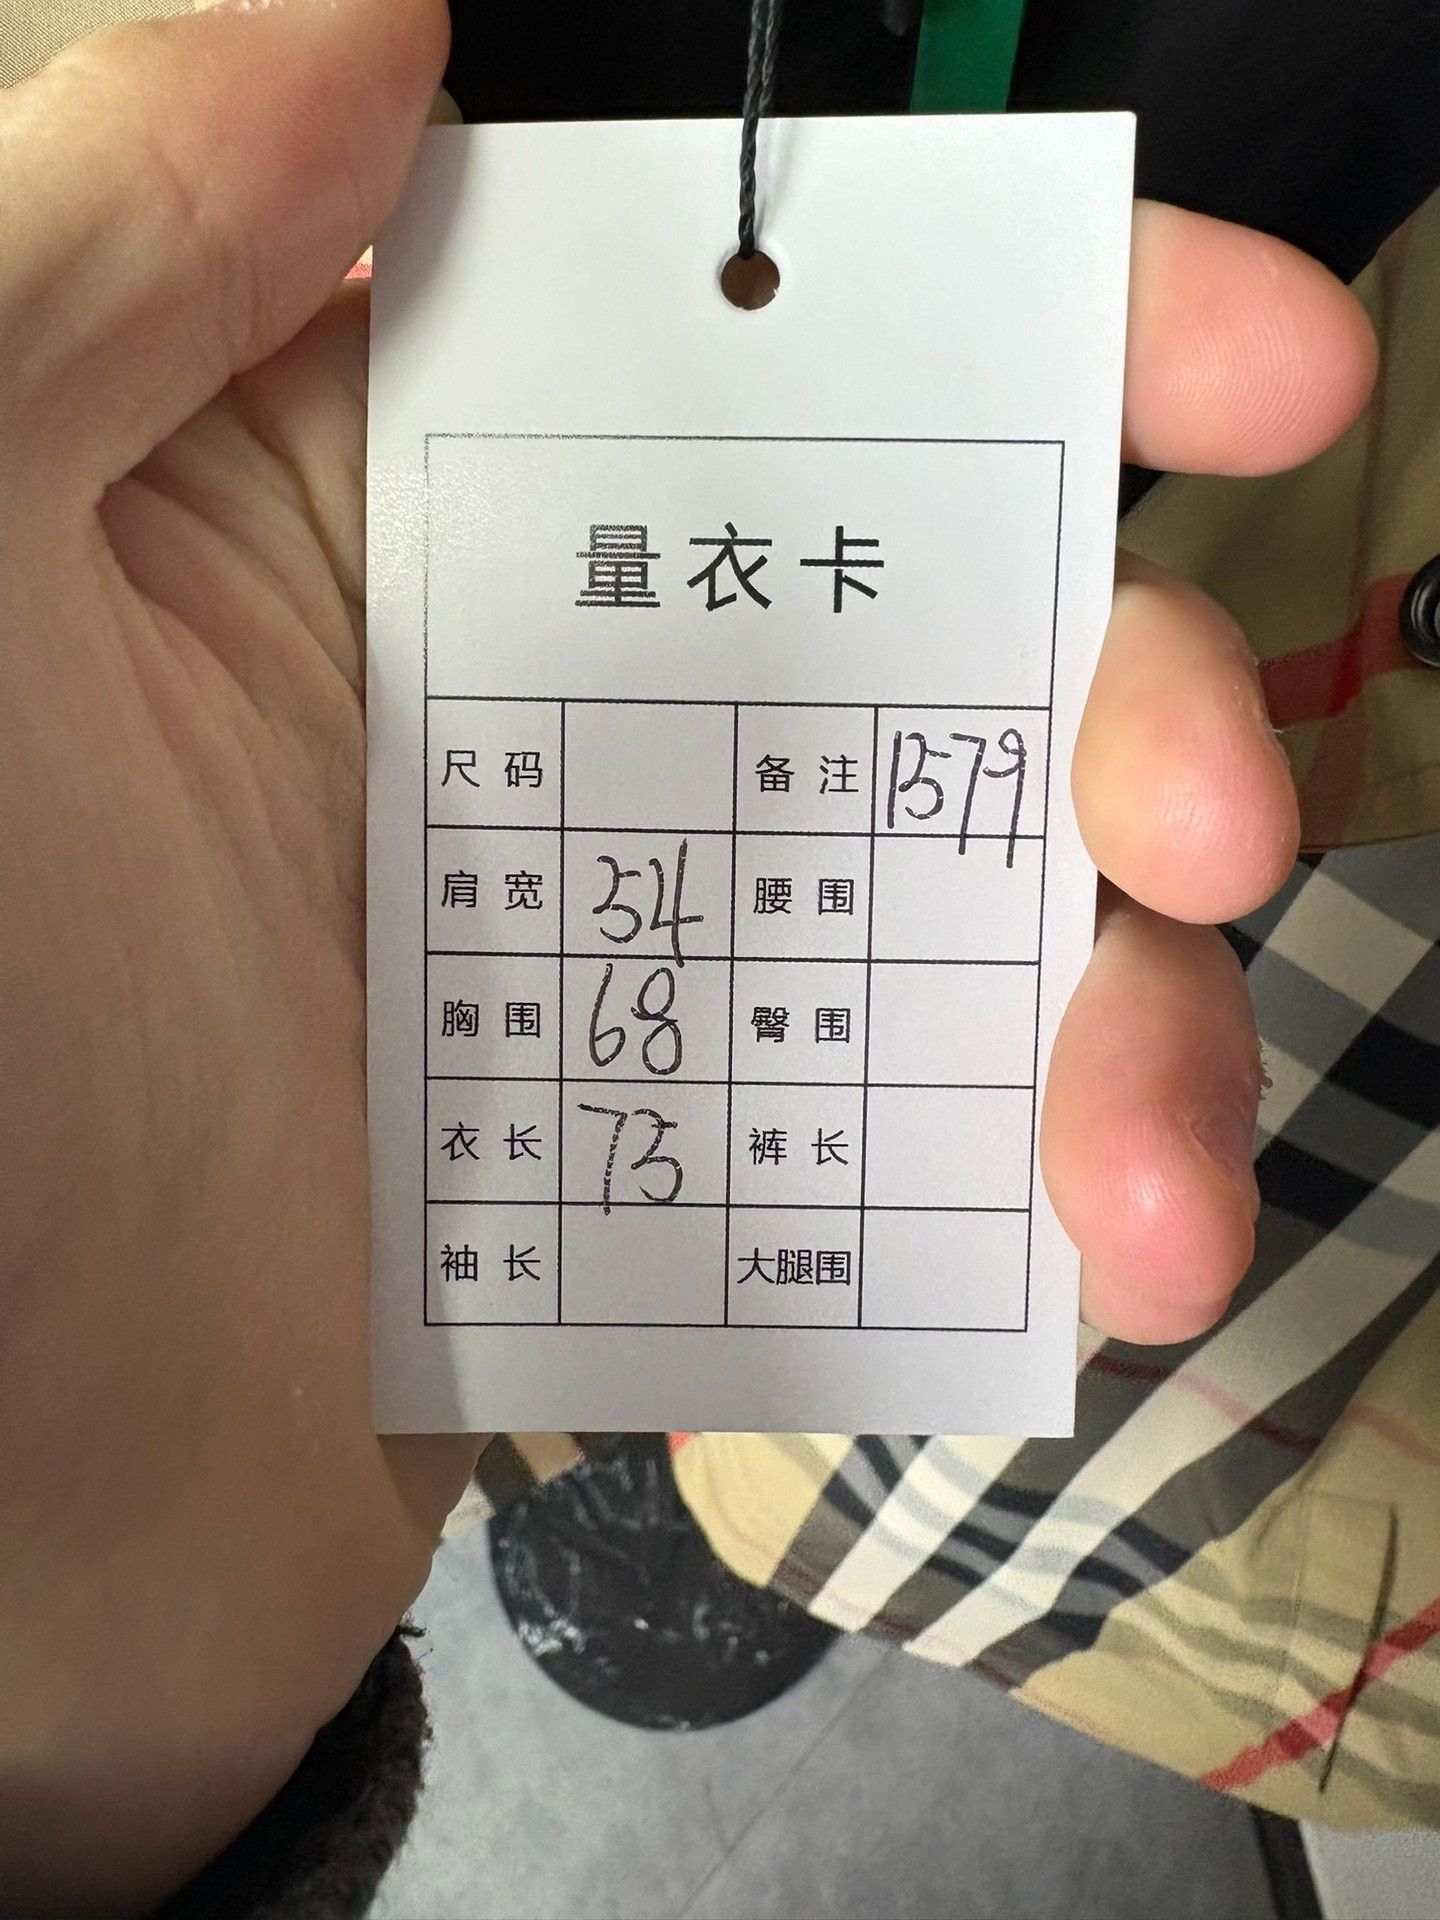 量衣卡
尺码 备注 1579
肩宽 54 腰围
胸围 68 臀围
衣长 75 裤长
袖长 大腿围